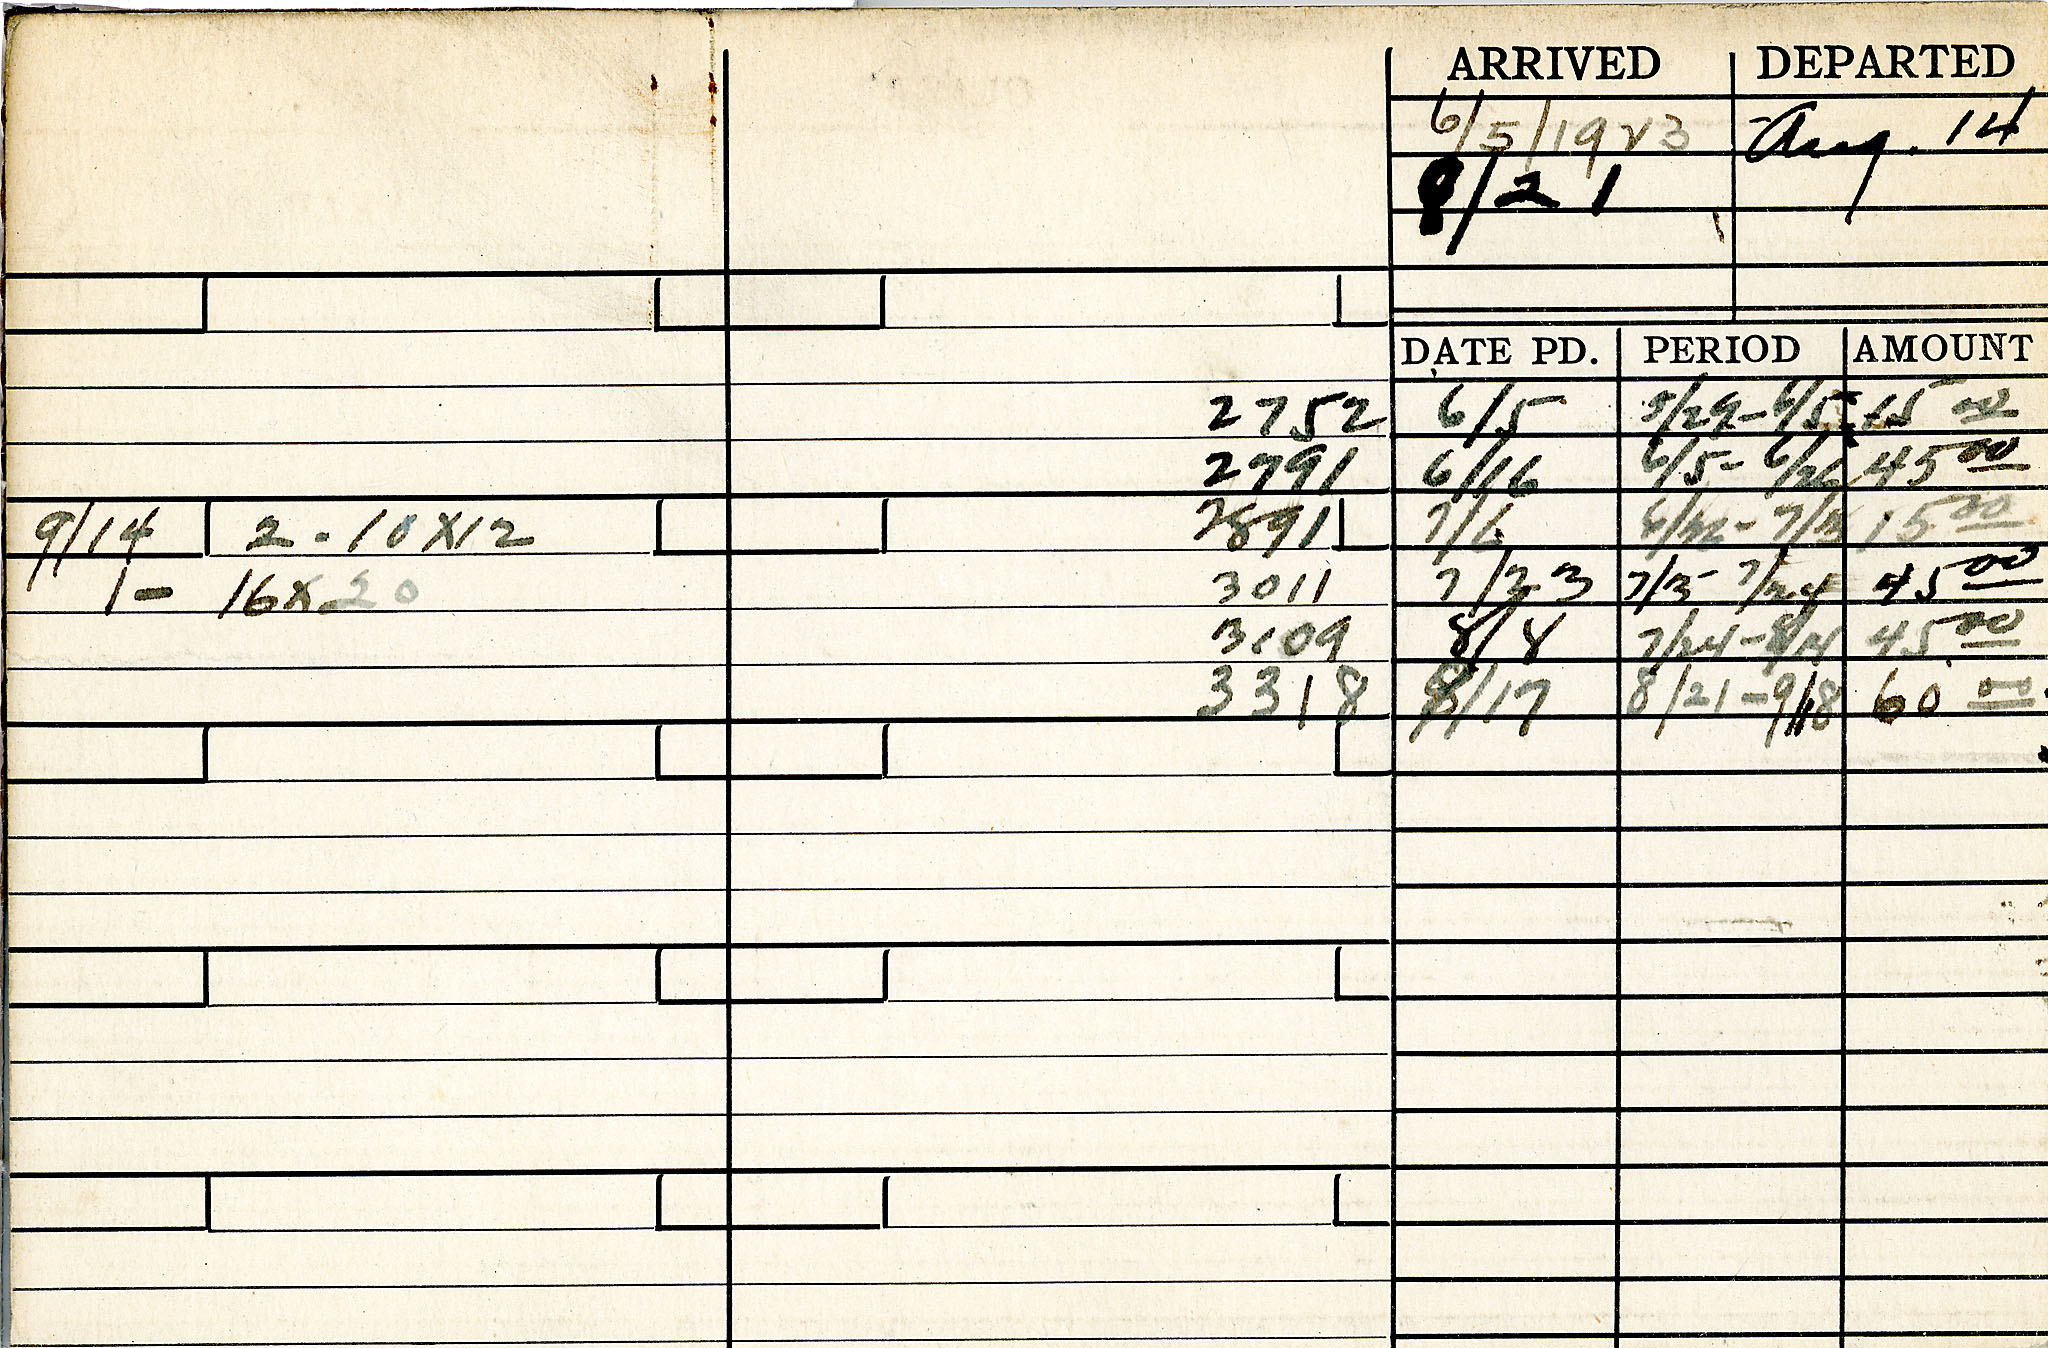 ARRIVED DEPARTED
6/5/1923 Aug. 14
8/21
DATE PD. PERIOD AMOUNT
2752 6/5 5/29-6/5 15 00
2791 6/16 6/5-6/26 45 00
9/14 2-10X12 2891 7/6 15 00
1- 16x20 3011 7/23 7/3-7/24 45 00
3109 8/8 7/24-8/14 45 00
3318 8/21-9/18 60 00